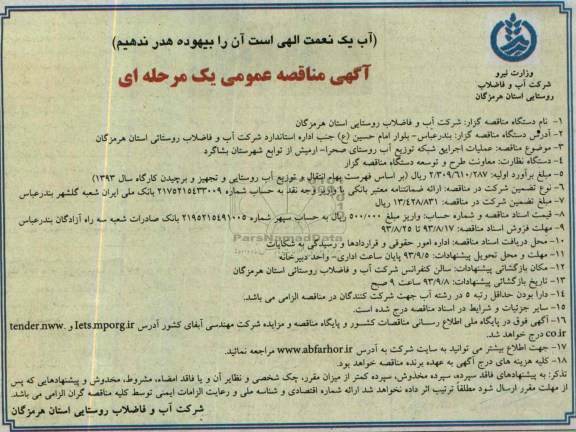 (آب یک نعمت الهی است آن را بیهوده هدر ندهیم)
آگهی مناقصه عمومی یک مرحله ای
وزارت نیرو
شرکت آب و فاضلاب
روستایی استان هرمزگان
۱- نام دستگاه مناقصه گزار: شرکت آب و فاضلاب روستایی استان هرمزگان
۲- آدرس دستگاه مناقصه گزار: بندرعباس- بلوار امام حسین (ع) جنب اداره استاندارد شرکت آب و فاضلاب روستائی استان هرمزگان
۳- موضوع مناقصه: عملیات اجرایق شبکه توزیع آب روستای صحرا- ارمیش از توابع شهرستان بشاگرد
۴- دستگاه نظارت: معاونت طرح و توسعه دستگاه مناقصه گزار
۵- مبلغ برآورد اولیه: ۲/۳۰۹/۶۱۰/۲۸۷ ریال (بر اساس فهرست بهای انتقال و توزیع آب روستایی و تجهیز و برچیدن کارگاه سال ۱۳۹۳)
۶- نوع تضمین شرکت در مناقصه: ارائه ضمانتنامه معتبر بانکی یا واریز وجه نقد به حساب شماره ۲۱۷۵۲۱۵۴۳۳۰۰۹ بانک ملی ایران شعبه گلشهر بندرعباس
۷- مبلغ تضمین شرکت در مناقصه: ۱۳/۴۲۸/۸۳۱ ریال
۸- قیمت اسناد مناقصه و شماره حساب: واریز مبلغ ۵۰۰/۰۰۰ ریال به حساب سپهر شماره ۲۱۹۵۲۱۵۴۹۱۰۰۵ بانک صادرات شعبه سه راه آزادگان بندرعباس
۹- مهلت فروش اسناد مناقصه: ۹۳/۸/۱۷ تا ۹۳/۸/۲۵
۱۰- محل دریافت اسناد مناقصه: اداره امور حقوقی و قراردادها و رسیدگی به شکایات
۱۱- مهلت و محل تحویل پیشنهادات: ۹۳/۹/۵ پایان ساعت اداری- واحد دبیرخانه
۱۲- مکان بازگشائی پیشنهادات: سالن کنفرانس شرکت آب و فاضلاب روستائی استان هرمزگان
۱۳- تاریخ بازگشائی پیشنهادات: ۹۳/۹/۸ ساعت ۹ صبح
۱۴- دارا بودن حداقل رتبه ۵ در رشته آب جهت شرکت کنندگان در مناقصه الزامی می باشد.
۱۵- سایر جزئیات و شرایط در اسناد مناقصه درج شده است.
۱۶- آگهی فوق در پایگاه ملی اطلاع رسانی مناقصات کشور و پایگاه مناقصه و مزایده شرکت مهندسی آبفای کشور آدرس Iets.mporg.ir و tender.nww.
co.ir درج خواهد شد.
۱۷- جهت اطلاع بیشتر می توانید به سایت شرکت به آدرس www.abfarhor.ir مراجعه نمائید.
۱۸- کلیه هزینه های درج آگهی به عهده برنده مناقصه خواهد بود.
تذکر: به پیشنهادهای فاقد سپرده، سپرده مخدوش، سپرده کمتر از میزان مقرر، چک شخصی و نظایر آن و یا فاقد امضاء، مشروط، مخدوش و پیشنهادهایی که پس
از مهلت مقرر ارسال شود مطلقا ترتیب اثر داده نخواهد شد ارائه شماره اقتصادی و شناسه ملی و رعایت الزامات ایمنی توسط کلیه مناقصه گران الزامی می باشد.
شرکت آب و فاضلاب روستایی استان هرمزگان
ParsNamadData